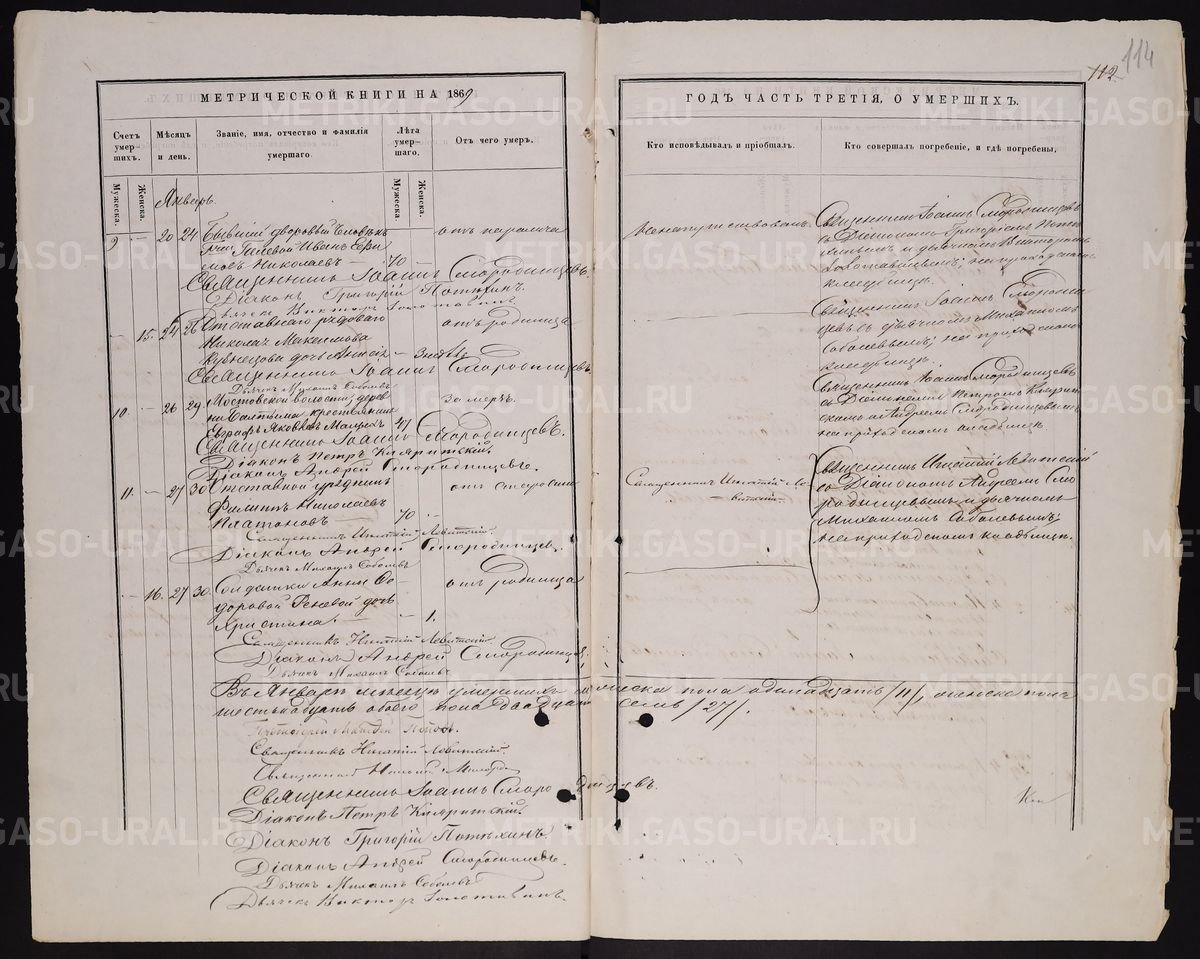 114
112
МЕТРИЧЕСКОЙ КНИГИ НА 1869
ГОДЪ ЧАСТЬ ТРЕТІЯ, О УМЕРШИХЪ.
Счетъ умер-шихъ.
Мѣсяцъ и день.
Званіе, имя, отчество и фамилія умершаго.
Лѣта умер-шаго.
Отъ чего умеръ.
Кто исповѣдывалъ и пріобщалъ.
Кто совершалъ погребеніе, и гдѣ погребены.
Мужеска.
Женска.
Мужеска.
Женска.
Январь.
9 — 20 24 Бывшій дворовый человѣкъ
Иванъ
Николаевъ — 70 —
отъ паралича
Священникъ Іоаннъ Смородинцевъ.
Діаконъ Григорій Потѣхинъ.
Дьячекъ Викторъ
— 15. 24 26 Отставнаго рядоваго
Николая Максимова
Кузнецова дочь
отъ родимца
Священникъ Іоаннъ Смородинцевъ.
Дьячекъ Михаилъ Соболевъ
10. — 26 29. Мостовской волости, дерев
ни Балтыма крестьянинъ
Евграфъ Яковлевъ 41
Священникъ Іоаннъ Смородинцевъ.
Діаконъ Петръ
Діаконъ Андрей Смородинцевъ.
11. — 27 30. Отставной урядникъ
Филиппъ Николаевъ
Платоновъ — 70 —
отъ старости
Священникъ Игнатій Левитскій.
Діаконъ Андрей Смородинцевъ.
Дьячекъ Михаилъ Соболевъ
— 16. 27 30. Солдатки Анны Ѳе
доровой дочь
Христина. — 1.
отъ родимца
Священникъ Игнатій Левитскій
Діаконъ Андрей Смородинцевъ.
Дьячекъ Михаилъ Соболевъ
Священникъ Іоаннъ Смородинцевъ
съ Діакономъ Григоріемъ Потѣ
хинымъ и дьячкомъ Викторомъ
на приходскомъ
кладбищѣ.
Священникъ Іоаннъ Смородин
цевъ съ дьячкомъ Михаиломъ
Соболевымъ; на приходскомъ
кладбищѣ.
Священникъ Іоаннъ Смородинцевъ
съ Діаконами Петромъ
и Андреемъ Смородинцевымъ
на приходскомъ кладбищѣ.
Священникъ Игнатій Ле
витскій
Священникъ Игнатій Левитскій
съ Діакономъ Андреемъ Смо
родинцевымъ и дьячкомъ
Михаиломъ Соболевымъ;
на приходскомъ кладбищѣ.
Въ Январѣ мѣсяцѣ умершихъ мужеска пола одинадцать /11/, женска пола
шестьнадцать обоего пола двадцать семь /27/.
Священникъ Игнатій Левитскій.
Священникъ
Священникъ Іоаннъ Смородинцевъ.
Діаконъ Петръ
Діаконъ Григорій Потѣхинъ.
Діаконъ Андрей Смородинцевъ.
Дьячекъ Михаилъ Соболевъ
Дьячекъ Викторъ
METRIKI.GASO-URAL.RU